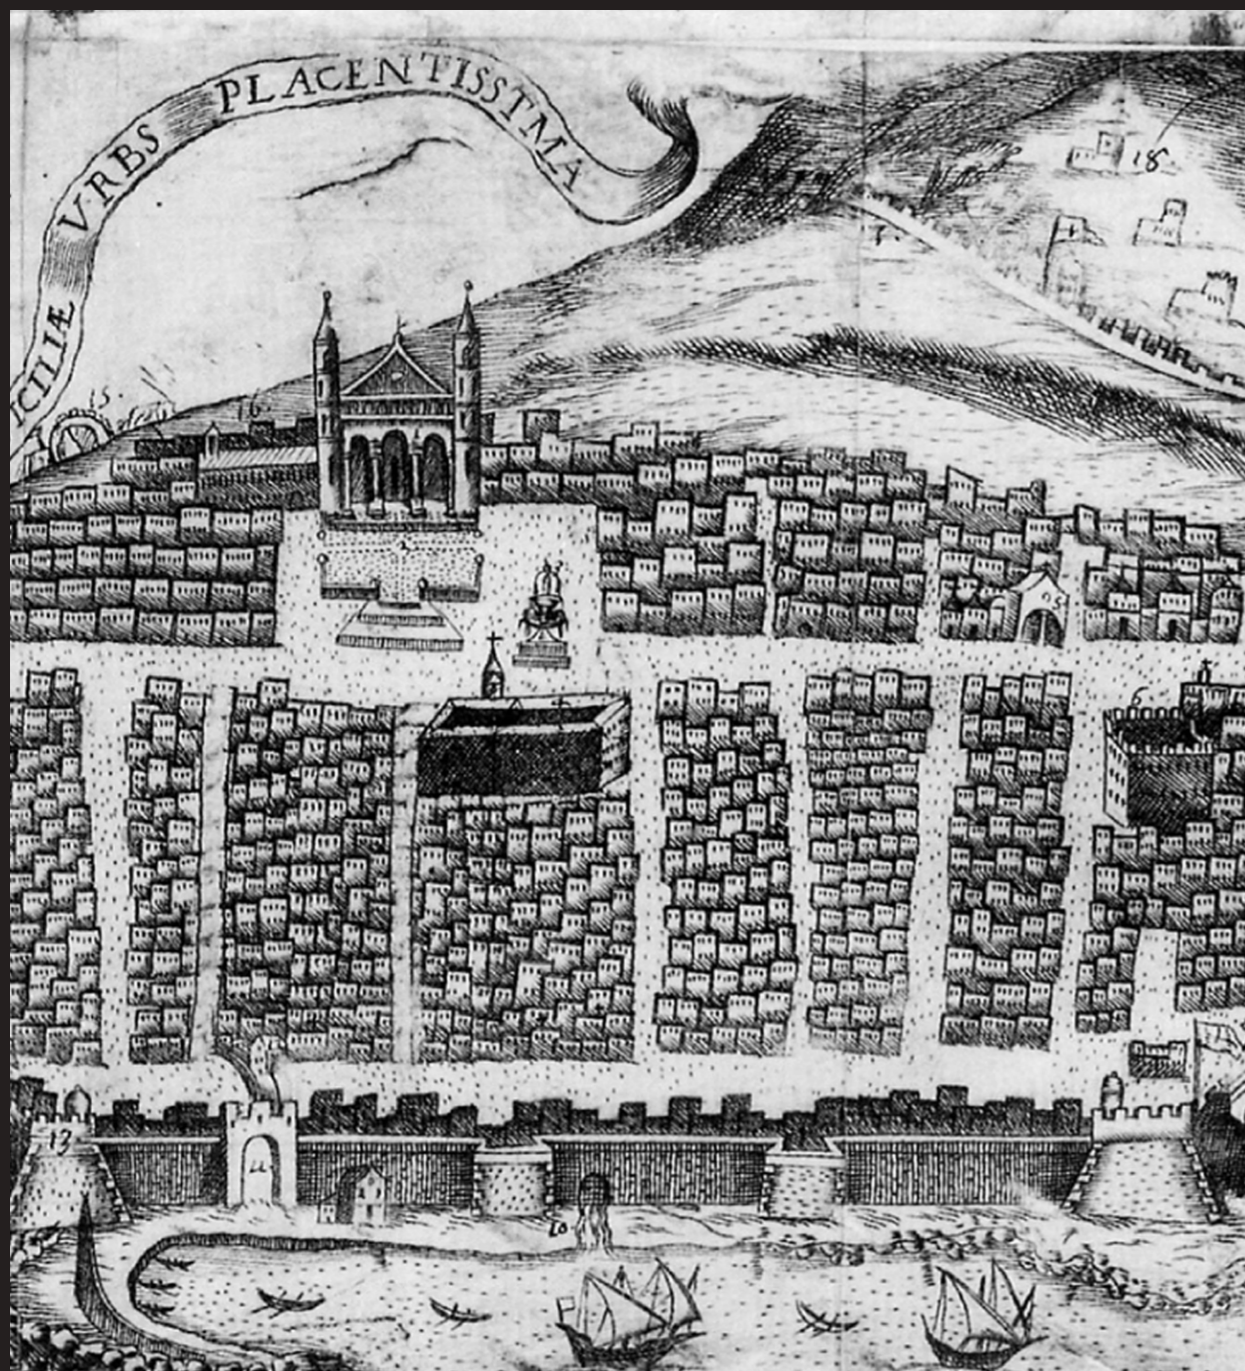 ICILIÆ VRBS PLACENTISSIMA
18
7.
15.
16.
2
5
6
13
11
10